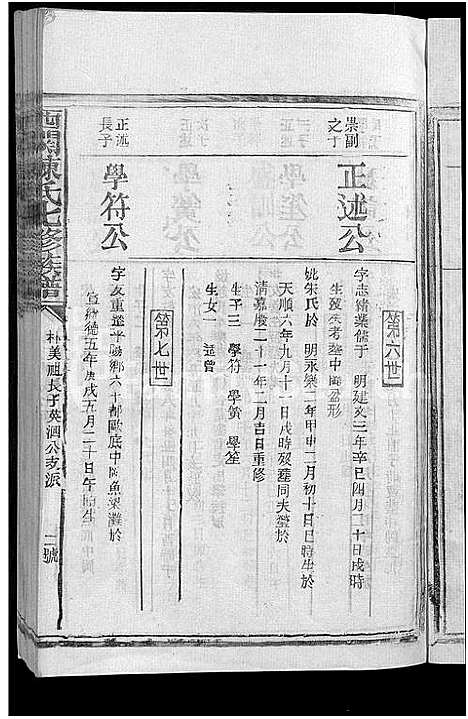 第六世
崇副
之子
正述公
字志緒業儒于 明建文三年辛巳四月二十日戌時
生歿失考墓中岡盆形
妣朱氏於 明永樂二年甲申二月初十日巳時生於
天順六年九月十一日戌時歿墓同夫塋於
清嘉慶二十一年二月吉日重修
生子三 學符 學簧 學笙
生女一 適曾
第七世
正述
長子
學符公
字友重遷平鄉六十都歐底中岡魚梁灘於
宣德五年庚戌五月二十日午時生
西關陳氏七修族譜
朴美祖長子英泗公支派
二號